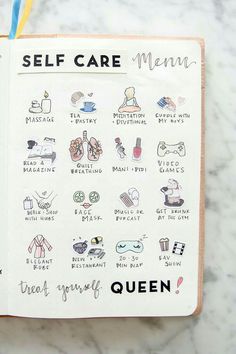 SELF CARE Menu
MASSAGE
TEA + PASTRY
MEDITATION + DEVOTIONAL
CUDDLE WITH MY BOYS
READ A MAGAZINE
QUIET BREATHING
MANI + PEDI
VIDEO GAMES
WITH HUBS
FACE MASK
MUSIC OR PODCAST
GET DRUNK AT THE GYM
ELEGANT ROBE
NEW RESTAURANT
20-30 MIN NAP
FAV SHOW
treat yourself QUEEN!